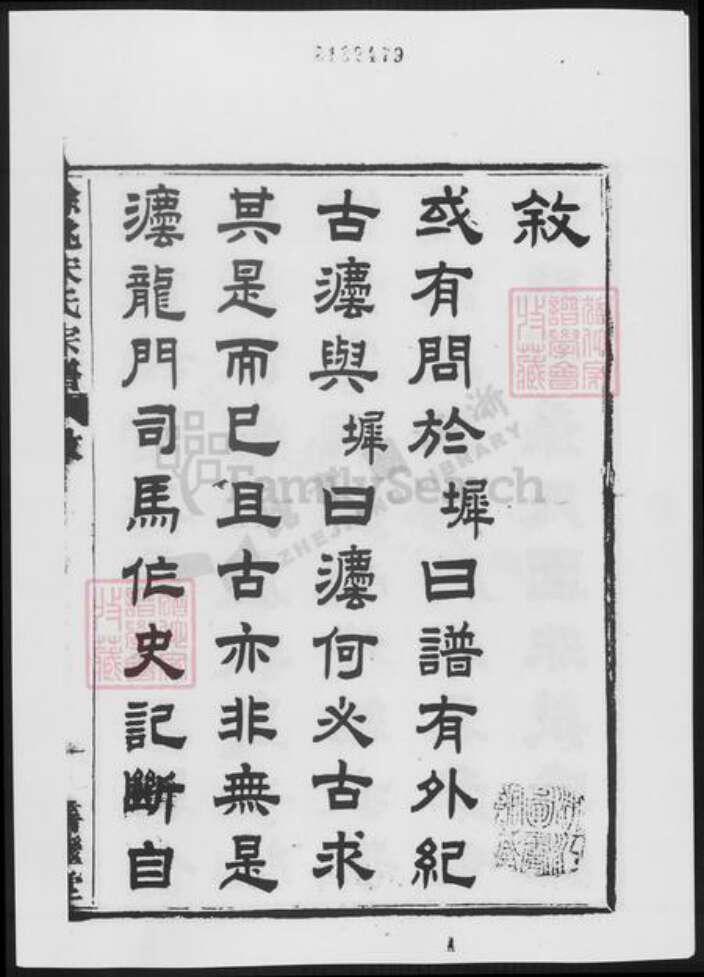 敘
或有問於墀曰譜有外紀
古灋與墀曰灋何必古求
其是而已且古亦非無是
灋龍門司馬作史記斷自
宋氏宗譜
FamilySearch
ZHEJIANG LIBRARY